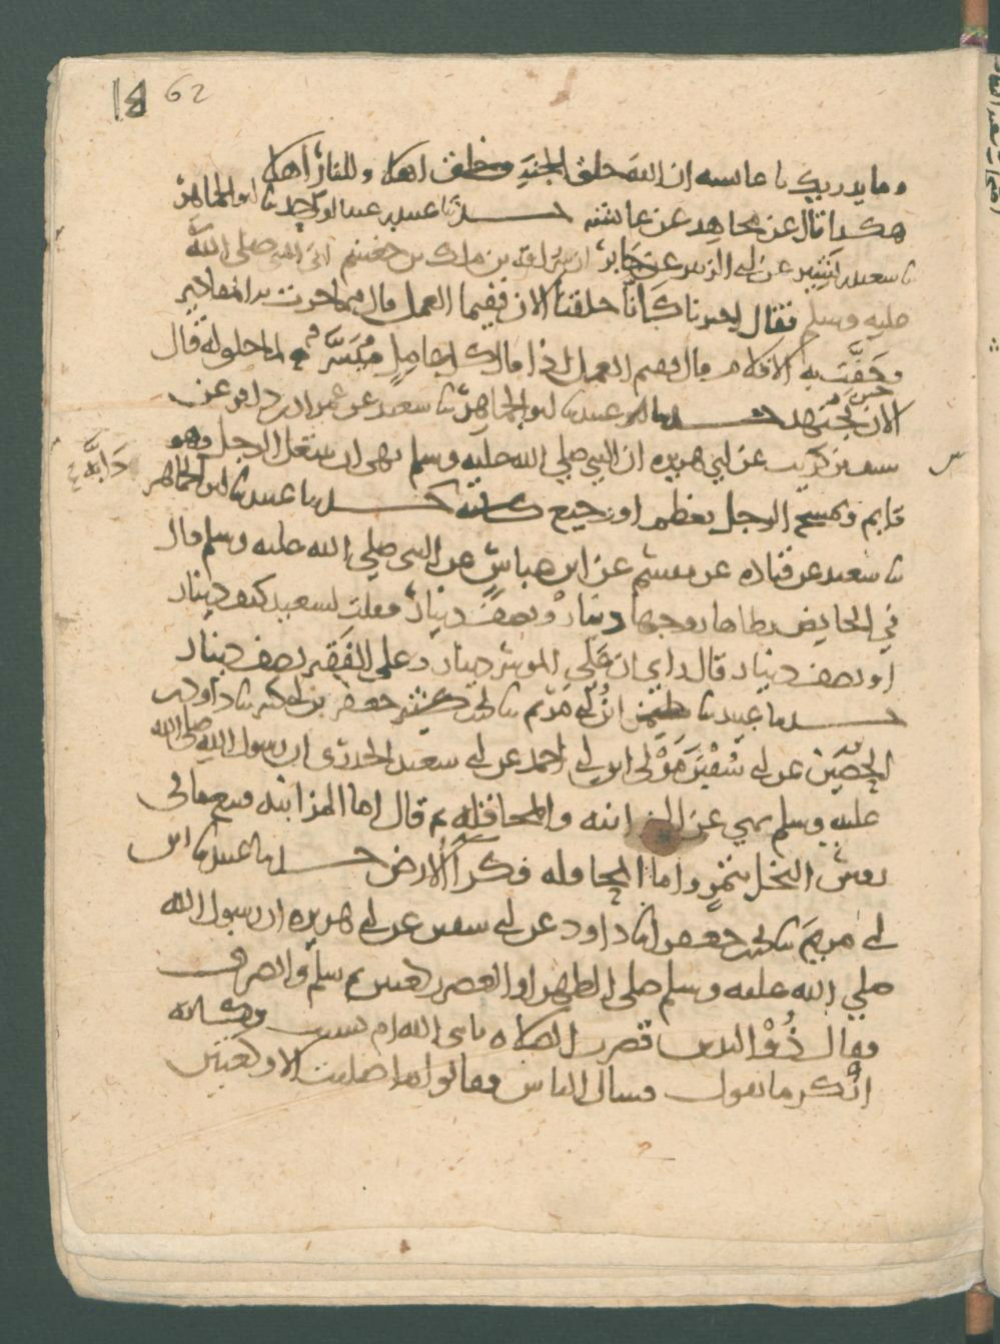 14 62
وما يدريك يا عايشه ان الله خلق الجنة وخلق اهلا وللنار اهلا
هكذا قال عن مجاهد عن عايشه حدثنا عبيد بن عبد الواحد ثنا ابو الجماهر
ثنا سعيد بن بشير عن ابي الزبير عن جابر ان سراقة بن مالك بن جعشم اتى النبي صلى الله
عليه وسلم فقال اخبرنا كأنا خلقنا الان ففيما العمل قال فيما جرت به المقادير
وجفت به الاقلام قال ففيم العمل اذا قال كل عامل ميسر لما خلق له قال
الان نجتهد حدثنا عبيد ثنا ابو الجماهر ثنا سعيد عن
عن ابي هريره ان النبي صلى الله عليه وسلم نهى ان يتنعل الرجل وهو
دابة
قايم وتمسح الرجل بعظم او رجيع حدثنا عبيد ثنا ابو الجماهر
ثنا سعيد عن قتاده عن مقسم عن ابن عباس عن النبي صلى الله عليه وسلم قال
في الحايض يطاها زوجها دينار ونصف دينار فقلت لسعيد كيف دينار
او نصف دينار قال راى ان على الموسر دينار وعلى الفقير نصف دينار
حدثنا عبيد ثنا ابن ابي مريم ثنا محمد بن جعفر بن ابي كثير ثنا داود بن
الحصين عن ابي سفين مولى ابن ابي احمد عن ابي سعيد الخدري ان رسول الله صلى الله
عليه وسلم نهي عن المزابنه والمحاقله قال اما المزابنه فبيع ما في
روس النخل بتمر واما المحاقله فكرا الارض حدثنا عبيد ثنا ابن
ابي مريم ثنا محمد بن جعفر ثنا داود عن ابي سفين عن ابي هريره ان رسول الله
صلي الله عليه وسلم صلى الظهر او العصر ركعتين ثم سلم وانصرف
فقال ذو اليدين قصرت الصلاه يا نبي الله ام نسيت
انكر ما تقول فسال الناس فقالوا ما صليت الا ركعتين